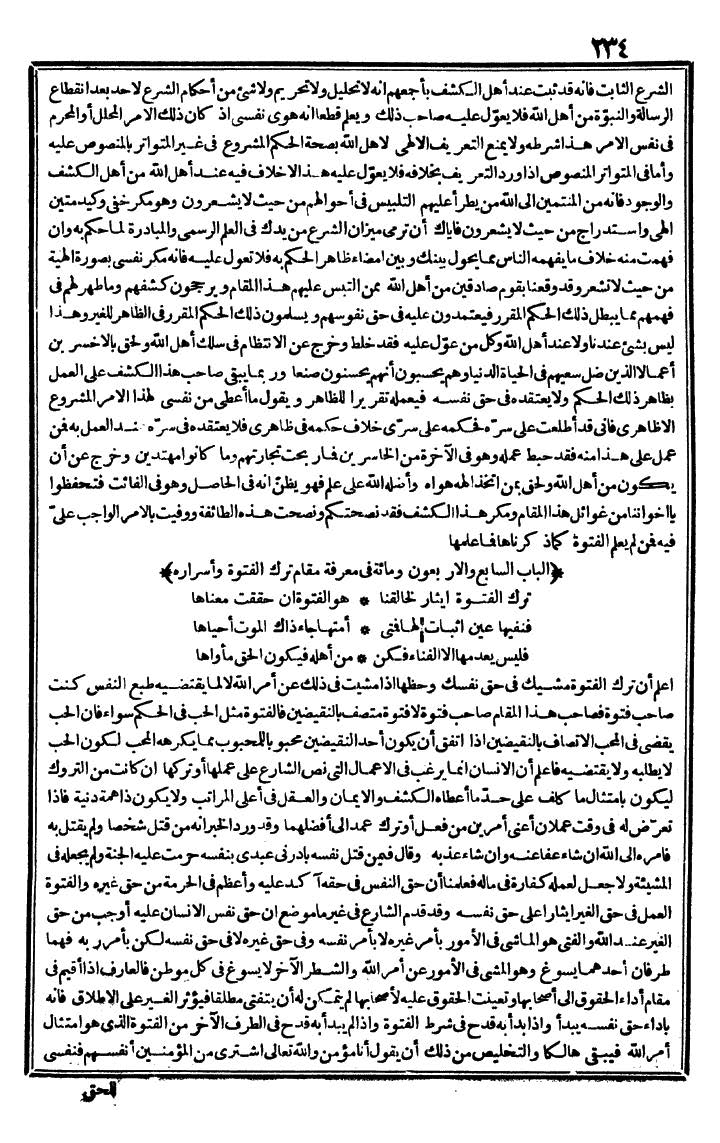 ٢٣٤
الشرع الثابت فانه قد ثبت عند أهل الكشف بأجعهم انه لا تحليل ولا تحريم ولا شئ من أحكام الشرع لاحد بعد انقطاع
الرسالة والنبوّة من أهل الله فلا يعوّل عليه صاحب ذلك ويعلم قطعا انه هوى نفسى اذ كان ذلك الامر المحلل أو المحرم
فى نفس الامر هذا شرطه ولا يمنع التعريف الالهى لاهل الله بصحة الحكم المشروع فى غير المتواتر بالمنصوص عليه
وأما فى المتواتر المنصوص اذا ورد التعريف بخلافه فلا يعوّل عليه هذا لاخلاف فيه عند أهل الله من أهل الكشف
والوجود فانه من المنتمين الى الله من يطرأ عليهم التلبيس فى أحوالهم من حيث لا يشعرون وهو مكر خفى وكيد متين
الهى واستدراج من حيث لا يشعرون فاياك أن ترمى ميزان الشرع من يدك فى العلم الرسمى والمبادرة لما حكم به وان
فهمت منه خلاف ما يفهمه الناس مما يحول بينك وبين امضاء ظاهر الحكم به فلا تعول عليه فانه مكر نفسى بصورة الهية
من حيث لا تشعر وقد وقعنا بقوم صادقين من أهل الله ممن التبس عليهم هذا المقام ويرجحون كشفهم وما ظهر لهم فى
فهمهم مما يبطل ذلك الحكم المقرر فيعتمدون عليه فى حق نفوسهم ويسلمون ذلك الحكم المقرر فى الظاهر للغير وهذا
ليس بشئ عندنا ولا عند أهل الله وكل من عوّل عليه فقد خلط وخرج عن الانتظام فى سلك أهل الله ولحق بالاخسرين
أعمالا الذين ضل سعيهم فى الحياة الدنيا وهم يحسبون أنهم يحسنون صنعا وربما يبقى صاحب هذا الكشف على العمل
بظاهر ذلك الحكم ولا يعتقده فى حق نفسه فيعمله تقريرا للظاهر ويقول ما أعطى من نفسى لهذا الامر المشروع
الاظاهرى فانى قد أطلعت على سرّه فحكمه على سرّى خلاف حكمه فى ظاهرى فلا يعتقده فى سرّه عند العمل به فمن
عمل على هذا منه فقد حبط عمله وهو فى الآخرة من الخاسرين فما ربحت تجارتهم وما كانوا مهتدين وخرج عن أن
يكون من أهل الله ولحق بمن اتخذ الهه هواه وأضله الله على علم فهو يظنّ انه فى الحاصل وهو فى الفائت فتحفظوا
يا اخواننا من غوائل هذا المقام ومكر هذا الكشف فقد نصحتكم ونصحت هذه الطائفة ووفيت بالامر الواجب علىّ
فيه فمن لم يعلم الفتوة كما ذكرناها فما علمها
﴿الباب السابع والاربعون ومائة فى معرفة مقام ترك الفتوة وأسراره﴾
ترك الفتوة ايثار لخالقنا * هو الفتوة ان حققت معناها
فنفيها عين اثبات لها فتى * أمتها جاء ذاك الموت أحياها
فليس يعدمها الا الفناء فكن * من أهله فيكون الحق مأواها
اعلم أن ترك الفتوة مشيك فى حق نفسك وحظها اذا مشيت فى ذلك عن أمر الله لا لما يقتضيه طبع النفس كنت
صاحب فتوة فصاحب هذا المقام صاحب فتوة لا فتوة متصف بالنقيضين فالفتوة مثل الحب فى الحكم سواء فان الحب
يقضى فى المحب الاتصاف بالنقيضين اذا اتفق أن يكون أحد النقيضين محبوبا للمحبوب مما يكرهه المحب لكون الحب
لا يطلبه ولا يقتضيه فاعلم أن الانسان انما يرغب فى الاعمال التى نص الشارع على عملها أو تركها ان كانت من التروك
ليكون بامتثال ما كلف على حدّ ما أعطاه الكشف والايمان والعقل فى أعلى المراتب ولا يكون ذا همة دنية فاذا
تعرّض له فى وقت عملان أعنى أمرين من فعل أو ترك عمد الى أفضلهما وقد ورد الخبر انه من قتل شخصا ولم يقتل به
فامره الى الله ان شاء عفا عنه وان شاء عذبه وقال فيمن قتل نفسه بادرنى عبدى بنفسه حرمت عليه الجنة ولم يجعله فى
المشيئة ولا جعل لعمله كفارة فى ماله فعلمنا أن حق النفس فى حقه آكد عليه وأعظم فى الحرمة من حق غيره والفتوة
العمل فى حق الغير ايثارا على حق نفسه وقد قدم الشارع فى غير ما موضع ان حق نفس الانسان عليه أوجب من حق
الغير عند الله والفتى هو الماشى فى الأمور بأمر غيره لا بأمر نفسه وفى حق غيره لا فى حق نفسه لكن بأمر ربه فهما
طرفان أحدهما يسوغ وهو المشى فى الأمور عن أمر الله والشطر الآخر لا يسوغ فى كل موطن فالعارف اذا أقيم فى
مقام أداء الحقوق الى أصحابها وتعينت الحقوق عليه لأصحابها لم يتمكن له أن يتفتى مطلقا فيؤثر الغير على الاطلاق فانه
باداء حق نفسه يبدأ واذا بدأ به قدح فى شرط الفتوة واذا لم يبدأ به قدح فى الطرف الآخر من الفتوة الذى هو امتثال
أمر الله فيبقى هالكا والتخليص من ذلك أن يقول أنا مؤمن والله تعالى اشترى من المؤمنين أنفسهم فنفسى
للحق